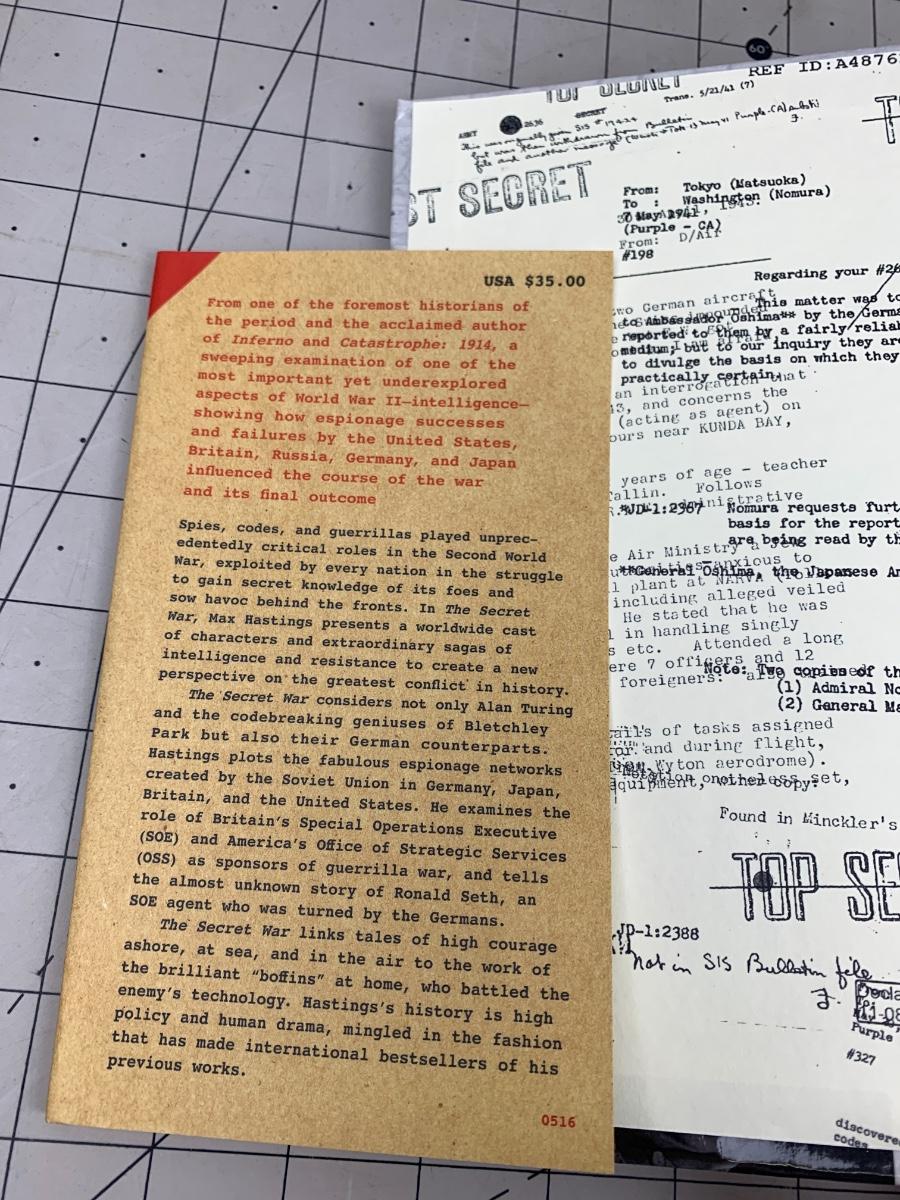 USA $35.00
From one of the foremost historians of
the period and the acclaimed author
of Inferno and Catastrophe: 1914, a
sweeping examination of one of the
most important yet underexplored
aspects of World War II—intelligence—
showing how espionage successes
and failures by the United States,
Britain, Russia, Germany, and Japan
influenced the course of the war
and its final outcome
Spies, codes, and guerrillas played unprec-
edentedly critical roles in the Second World
War, exploited by every nation in the struggle
to gain secret knowledge of its foes and
sow havoc behind the fronts. In The Secret
War, Max Hastings presents a worldwide cast
of characters and extraordinary sagas of
intelligence and resistance to create a new
perspective on the greatest conflict in history.
The Secret War considers not only Alan Turing
and the codebreaking geniuses of Bletchley
Park but also their German counterparts.
Hastings plots the fabulous espionage networks
created by the Soviet Union in Germany, Japan,
Britain, and the United States. He examines the
role of Britain's Special Operations Executive
(SOE) and America's Office of Strategic Services
(OSS) as sponsors of guerrilla war, and tells
the almost unknown story of Ronald Seth, an
SOE agent who was turned by the Germans.
The Secret War links tales of high courage
ashore, at sea, and in the air to the work of
the brilliant "boffins" at home, who battled the
enemy's technology. Hastings's history is high
policy and human drama, mingled in the fashion
that has made international bestsellers of his
previous works.
0516
60°
TOP SECRET
REF ID:A4876
Trans. 5/21/41 (7)
SECRET
ST SECRET
From: Tokyo (Matsuoka)
To : Washington (Nomura)
7 May 1941
(Purple - CA)
From: D/Air
#198
Regarding your #26
two German aircraft
This matter was to
to Ambassador Oshima** by the Germa
reported to them by a fairly reliab
medium; but to our inquiry they are
to divulge the basis on which they
practically certain.
an interrogation that
13, and concerns the
(acting as agent) on
ours near KUNDA BAY,
years of age - teacher
Tallin. Follows
administrative
*JD-1:2367 Nomura requests furt
basis for the report
are being read by th
e Air Ministry
anxious to
**General Oshima, the Japanese Am
l plant at NARVA
including alleged veiled
He stated that he was
l in handling singly
s etc. Attended a long
ere 7 officers and 12
foreigners.
Note: Two copies of th
(1) Admiral No
(2) General Ma
ails of tasks assigned
and during flight,
Wyton aerodrome).
equipment, wireless set,
Found in Minckler's
TOP SE
JD-1:2388
not in SIS Bulletin file
J.
Decla
11-08
Purple
#327
discovere
codes